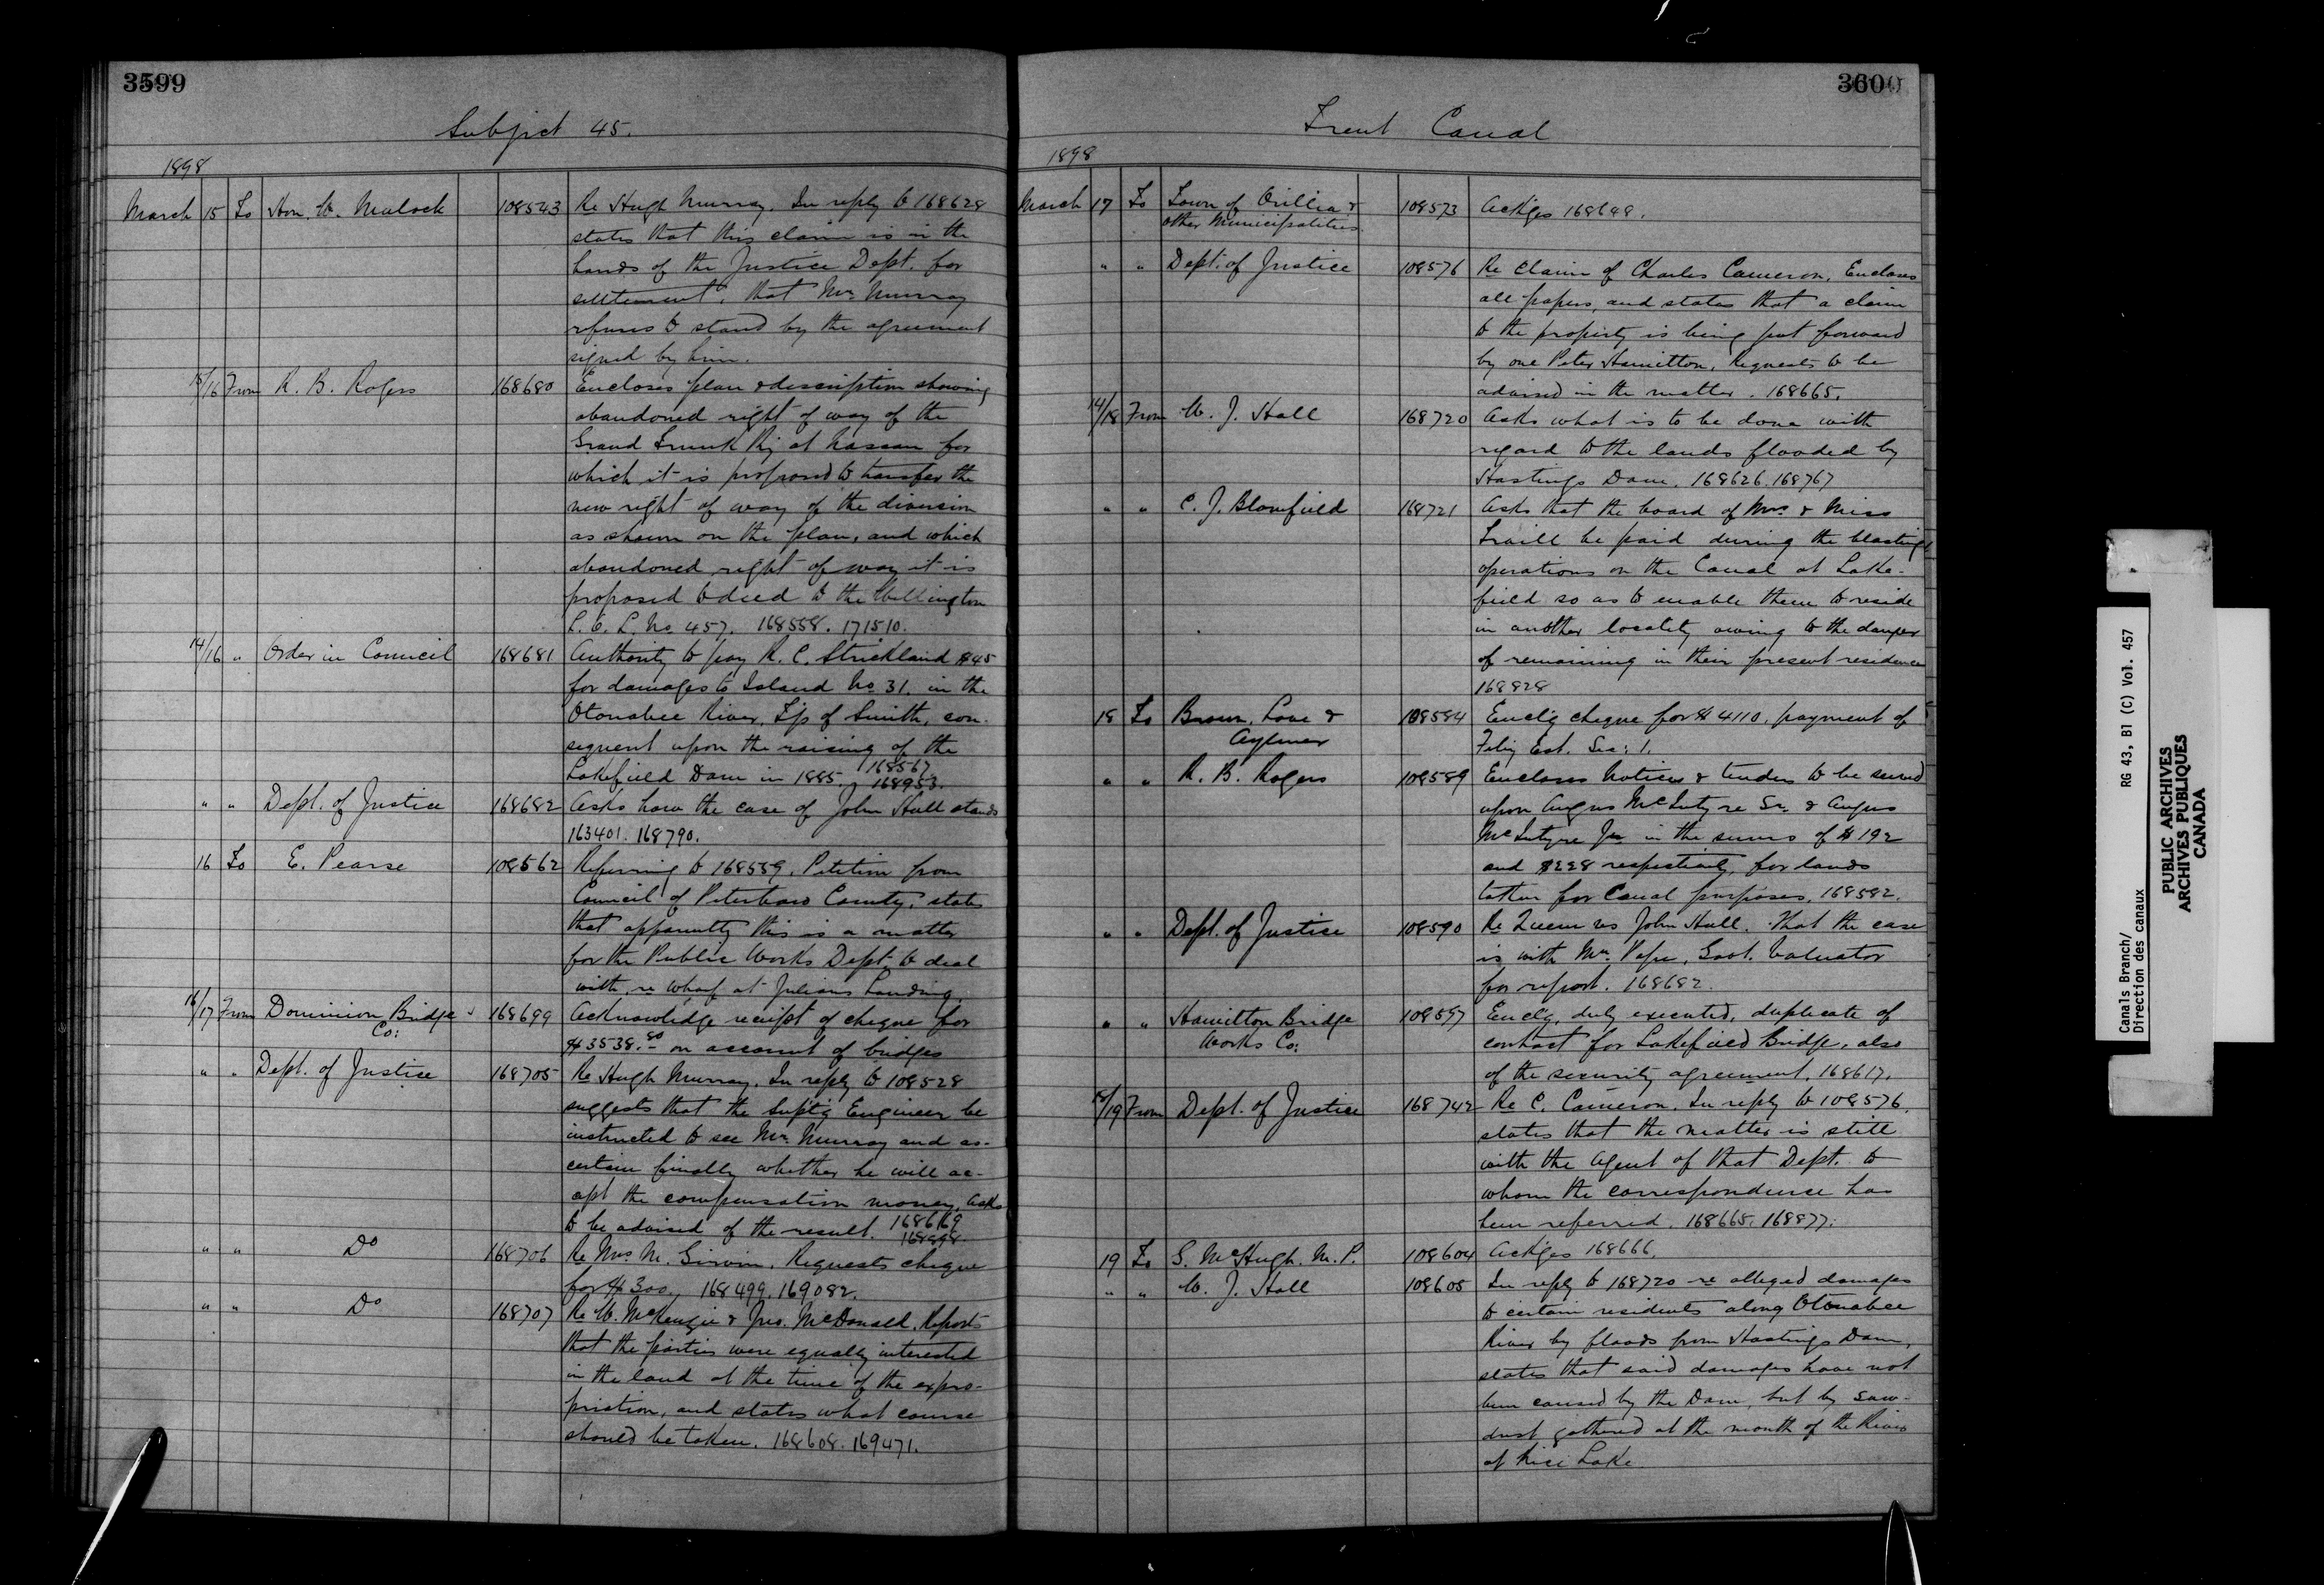 3599
Subject 45.
1898
March 15 To Hon. W. Mulock 108543 Re Hugh Murray. In reply to 168628
states that this claim is in the
hands of the Justice Dept. for
settlement, that Mr. Murray
refuses to stand by the agreement
signed by him.
15/16 From R. B. Rogers 168680 Encloses plan & description showing
abandoned right of way of the
Grand Trunk Ry at Nassau for
which it is proposed to transfer the
new right of way of the diversion
as shown on the plan, and which
abandoned right of way it is
proposed to deed to the Wellington
L. O. L. No. 457. 168558. 171510.
14/16 " Order in Council 168681 Authority to pay R. C. Strickland $45
for damages to Island No. 31. in the
Otonabee River, Tp of Smith, con-
sequent upon the raising of the
Lakefield Dam in 1885. 168567.
168953.
" " Dept. of Justice 168682 Asks how the case of John Hall stands
163401. 168790.
16 To E. Pearse 108562 Referring to 168559. Petition from
Council of Peterboro County, states
that apparently this is a matter
for the Public Works Dept. to deal
with, re wharf at Julians Landing.
16/17 From Dominion Bridge Co: 168699 Acknowledge receipt of cheque for
$3538.80 on account of bridges
" " Dept. of Justice 168705 Re Hugh Murray. In reply to 108528
suggests that the Suptg Engineer be
instructed to see Mr. Murray and as-
certain finally whether he will ac-
cept the compensation money, asks
to be advised of the result. 168669
168998.
" " Do 168706 Re Mrs M. Girvin. Requests cheque
for $300. 168499. 169082.
" " Do 168707 Re W. McKenzie & Jno. McDonald. Reports
that the parties were equally interested
in the land at the time of the expro-
priation, and states what course
should be taken. 168608. 169471.
3600
Trent Canal
1898
March 17 To Town of Orillia & 108573 Ackges 168648.
other Municipalities.
" " Dept. of Justice 108576 Re Claim of Charles Cameron, Encloses
all papers, and states that a claim
to the property is being put forward
by one Peter Hamilton, Requests to be
advised in the matter. 168665.
14/18 From W. J. Hall 168720 Asks what is to be done with
regard to the lands flooded by
Hastings Dam. 168626. 168767
" " C. J. Blomfield 168721 Asks that the board of Mrs. & Miss
Traill be paid during the blasting
operations on the Canal at Lake-
field so as to enable them to reside
in another locality owing to the danger
of remaining in their present residence
168828
18 To Brown, Love & 108584 Enclg cheque for $4110. payment of
Aylmer Feby Est. Sec: 1.
" " R. B. Rogers 108589 Encloses Notices & tenders to be served
upon Angus McIntyre Sr. & Angus
McIntyre Jr. in the sums of $192
and $228 respectively, for lands
taken for Canal purposes. 168582.
" " Dept. of Justice 108590 Re Queen vs John Hall. That the case
is with Mr. Pope, Govt. Valuator
for report. 168682.
" " Hamilton Bridge 108597 Enclg, duly executed, duplicate of
Works Co: contract for Lakefield Bridge, also
of the security agreement. 168617.
18/19 From Dept. of Justice 168742 Re C. Cameron. In reply to 108576.
states that the matter is still
with the Agent of that Dept. to
whom the correspondence has
been referred. 168665. 168877.
19 To G. McHugh. M. P. 108604 Ackges 168666.
" " W. J. Hall 108605 In reply to 168720 re alleged damages
to certain residents along Otonabee
River by floods from Hastings Dam,
states that said damages have not
been caused by the Dam, but by saw-
dust gathered at the mouth of the River
at Rice Lake.
Canals Branch/ RG 43, B1 (C) Vol. 457
Direction des canaux
PUBLIC ARCHIVES
ARCHIVES PUBLIQUES
CANADA